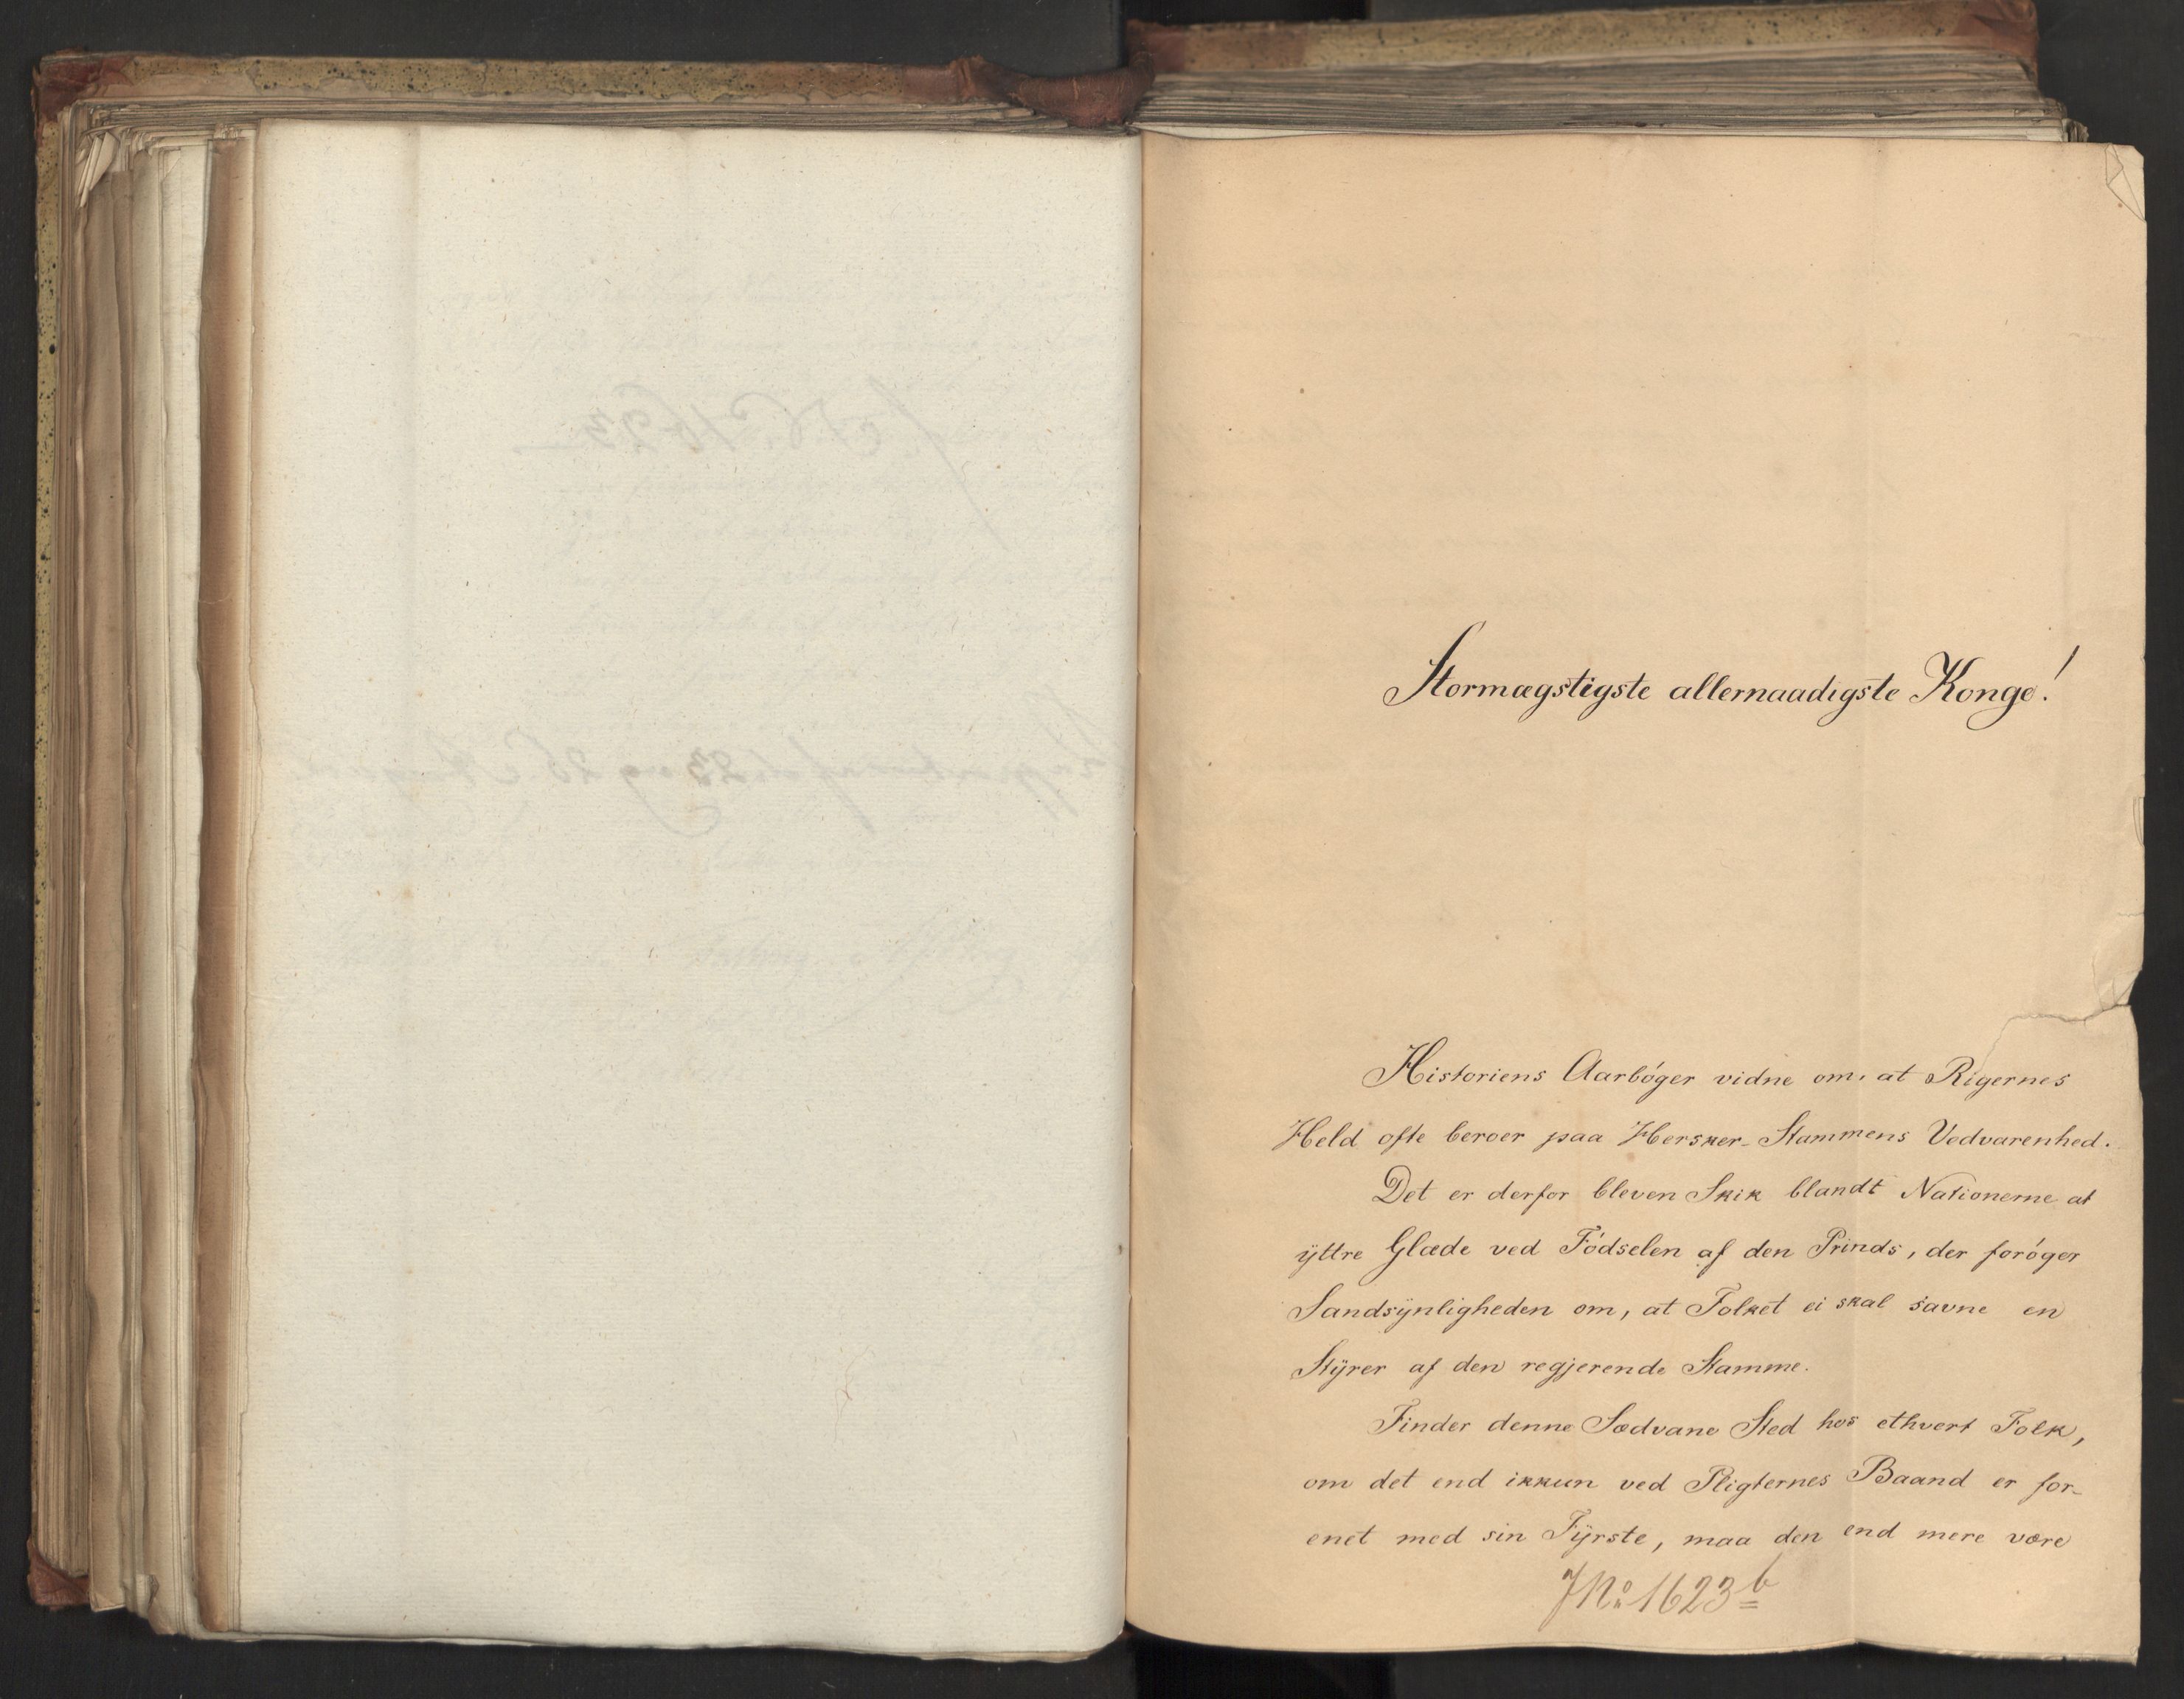 Stormægstigste allernaadigste Konge!
Historiens Aarbóger vidne om, at Rigernes
Held ofte beroer paa Hersker-Stammens Vedvarenhed.
Det er derfor bleven Skik blandt Nationerne at
ÿttre Glæde ved Fódselen af den Prinds, der foróger
Sandsÿnligheden om, at Folket ei skal savne en
Stÿrer af den regjerende Stamme.
Finder denne Sædvane Sted hos ethvert Folk,
om det end ikkun ved Pligternes Baand er for-
enet med sin Fÿrste, maa den end mere være
J No 1623 b